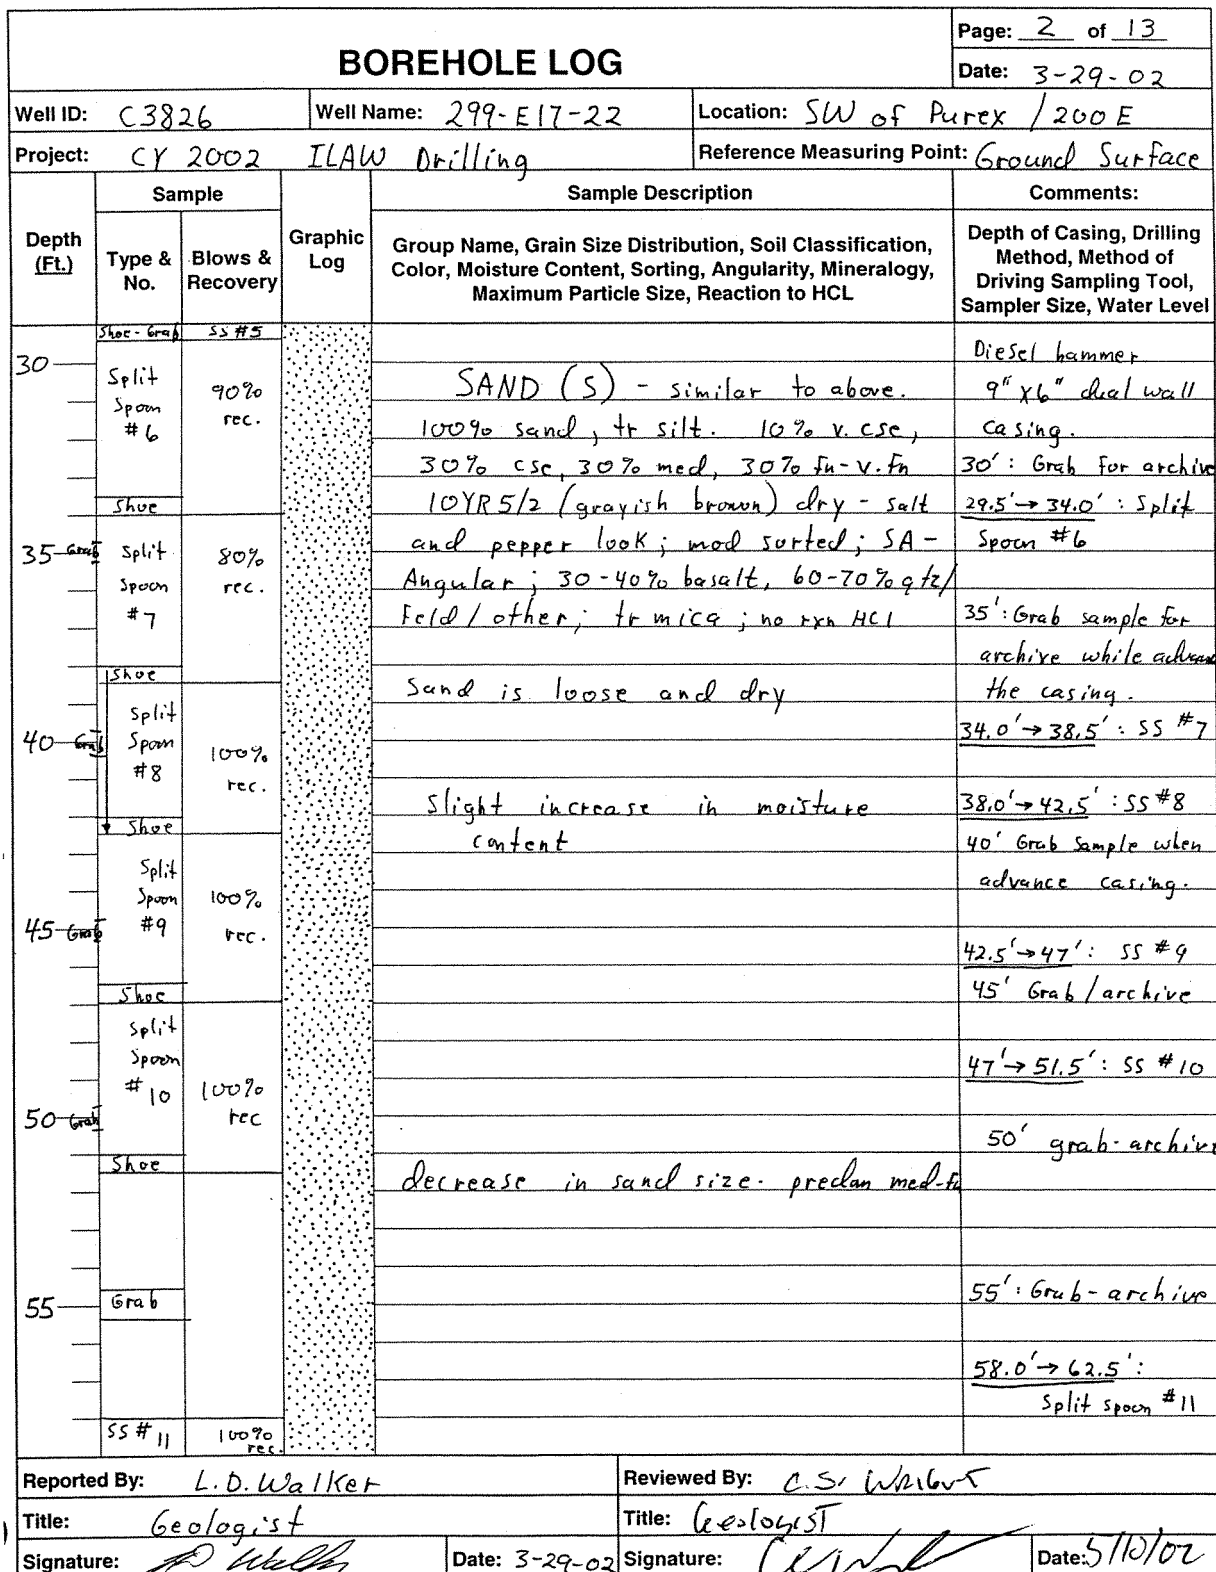 BOREHOLE LOG
Page: 2 of 13
Date: 3-29-02
Well ID: C3826
Well Name: 299-E17-22
Location: SW of Purex / 200 E
Project: CY 2002 ILAW Drilling
Reference Measuring Point: Ground Surface
Depth (Ft.)
Sample
Type & No.
Blows & Recovery
Graphic Log
Sample Description
Group Name, Grain Size Distribution, Soil Classification,
Color, Moisture Content, Sorting, Angularity, Mineralogy,
Maximum Particle Size, Reaction to HCL
Comments:
Depth of Casing, Drilling
Method, Method of
Driving Sampling Tool,
Sampler Size, Water Level
Shoe-Grab SS #5
30
Split
Spoon
#6
90%
rec.
Shoe
35 Grab
Split
Spoon
#7
80%
rec.
Shoe
40 Grab
Split
Spoon
#8
100%
rec.
Shoe
45 Grab
Split
Spoon
#9
100%
rec.
Shoe
Split
Spoon
#10
100%
rec
50 Grab
Shoe
55
Grab
SS #11
100%
rec.
SAND (S) - similar to above.
100% sand, tr silt. 10% v. cse,
30% cse, 30% med, 30% fn-v.fn
10YR5/2 (grayish brown) dry - salt
and pepper look; mod sorted; SA-
Angular; 30-40% basalt, 60-70% qtz/
Feld/other; tr mica; no rxn HCl
Sand is loose and dry
Slight increase in moisture
content
decrease in sand size. predom med-fn
Diesel hammer
9" x 6" dual wall
casing.
30': Grab for archive
29.5'→34.0': Split
Spoon #6
35': Grab sample for
archive while advanc
the casing.
34.0'→38.5': SS #7
38.0'→42.5': SS #8
40' Grab Sample when
advance casing.
42.5'→47': SS #9
45' Grab/archive
47'→51.5': SS #10
50' grab-archive
55': Grab-archive
58.0'→62.5':
Split spoon #11
Reported By: L.D. Walker
Reviewed By: C.S. Wright
Title: Geologist
Title: Geologist
Signature: Walker
Date: 3-29-02
Signature:
Date: 5/10/02